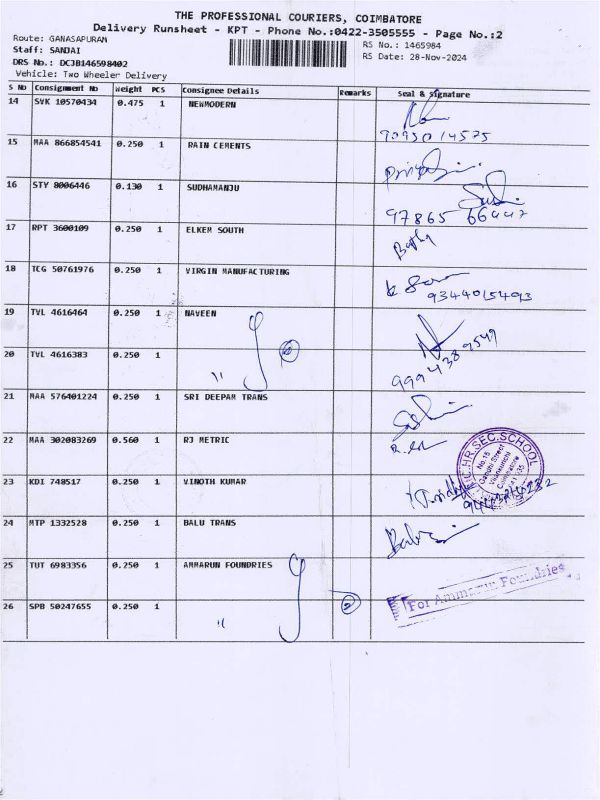 THE PROFESSIONAL COURIERS, COIMBATORE
Delivery Runsheet - KPT - Phone No.:0422-3505555 - Page No.:2
Route: GANASAPURAM
RS No.: 1465984
Staff: SANJAI
RS Date: 28-Nov-2024
DRS No.: DCJB146598402
Vehicle: Two Wheeler Delivery
S No Consignment No Weight PCS Consignee Details Remarks Seal & Signature
14 SVK 10570434 0.475 1 NEWMODERN
9095014575
15 MAA 866854541 0.250 1 RAIN CEMENTS
16 STY 8006446 0.130 1 SUDHAMANJU
97865 66447
17 RPT 3600109 0.250 1 ELKEM SOUTH
18 TCG 50761976 0.250 1 VIRGIN MANUFACTURING
9344015493
19 TVL 4616464 0.250 1 NAVEEN
20 TVL 4616383 0.250 1 "
9994389549
21 MAA 576401224 0.250 1 SRI DEEPAM TRANS
22 MAA 302083269 0.560 1 RJ METRIC
HR.SEC.SCHOOL
No.15
23 KDI 748517 0.250 1 VINOTH KUMAR
24 MTP 1332528 0.250 1 BALU TRANS
25 TUT 6983356 0.250 1 AMMARUN FOUNDRIES
26 SPB 50247655 0.250 1 " 2
For Ammarun Foundries